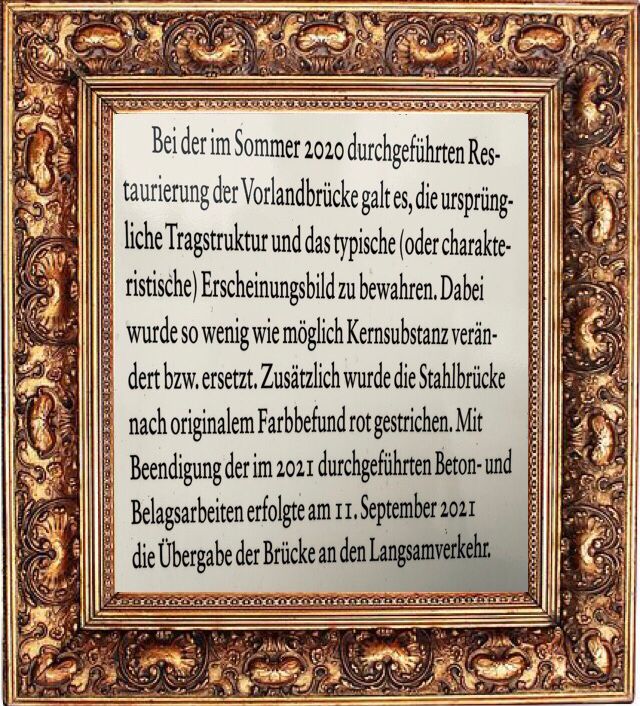 Bei der im Sommer 2020 durchgeführten Res-
taurierung der Vorlandbrücke galt es, die ursprüng-
liche Tragstruktur und das typische (oder charakte-
ristische) Erscheinungsbild zu bewahren. Dabei
wurde so wenig wie möglich Kernsubstanz verän-
dert bzw. ersetzt. Zusätzlich wurde die Stahlbrücke
nach originalem Farbbefund rot gestrichen. Mit
Beendigung der im 2021 durchgeführten Beton- und
Belagsarbeiten erfolgte am 11. September 2021
die Übergabe der Brücke an den Langsamverkehr.